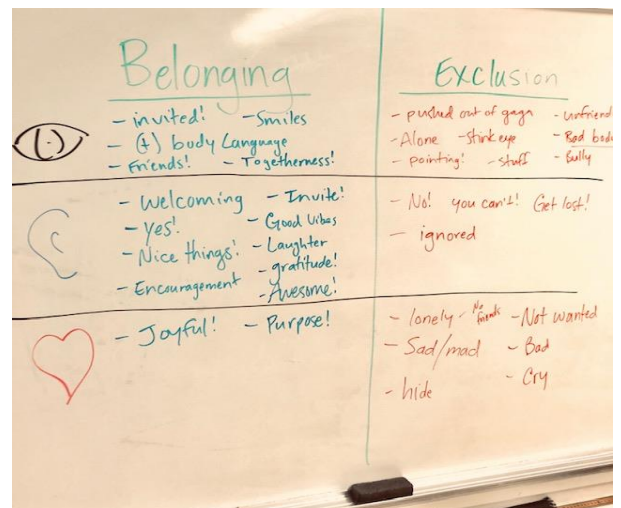 Belonging
- invited! - Smiles
- (+) body Language
- Friends! - Togetherness!
- Welcoming - Invite!
- Yes! - Good Vibes
- Nice things! - Laughter
- gratitude!
- Encouragement - Awesome!
- Joyful! - Purpose!
Exclusion
- pushed out of gaga - unfriend
- Alone - Stink eye - Bad bod
- pointing! - stuff - Bully
- No! you can't! Get lost!
- ignored
- lonely - No friends - Not wanted
- Sad/mad - Bad
- hide - Cry